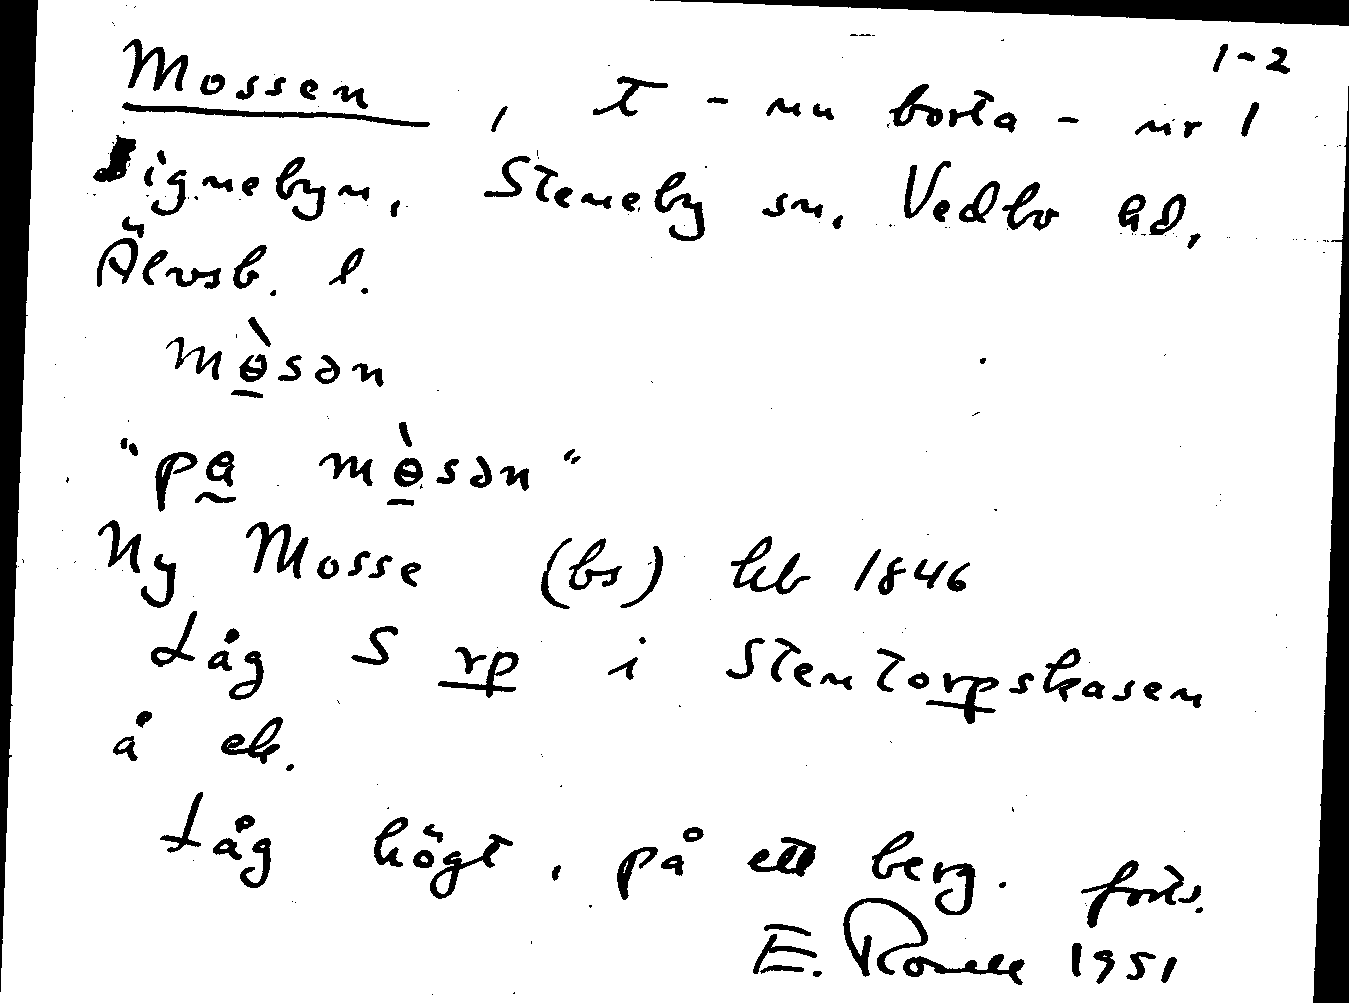 1-2
Mossen, T - nu borta - nr 1
Signebyn, Steneby sn, Vedbo hd,
Älvsb. l.
mɵ̀sən
"pa mɵ̀sən"
Ny Mosse (bs) hb 1846
Låg S rp i Stentorpskasen
å ek.
Låg högt, på ett berg. forts.
E. Rosell 1951